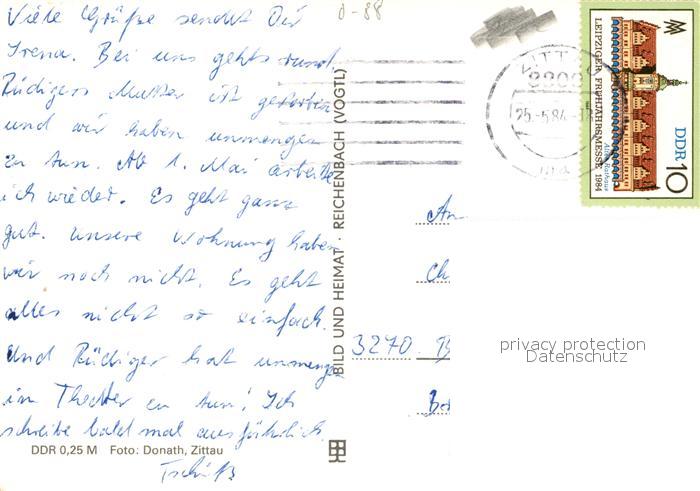 Viele Grüße sendet Dir
Irena. Bei uns gehts rund.
Rüdigers Mutter ist gestorben
und wir haben unmengen
zu tun. Ab 1. Mai arbeite
ich wieder. Es geht ganz
gut. Unsere Wohnung haben
wir noch nicht. Es geht
alles nicht so einfach.
Und Rüdiger hat unmengen
im Theater zu tun! Ich
schreibe bald mal ausführlich.
Tschüß
DDR 0,25 M Foto: Donath, Zittau
BILD UND HEIMAT · REICHENBACH (VOGTL)
25.-5.84.-18
LEIPZIGER FRÜHJAHRSMESSE 1984
Altes Rathaus
DDR 10
3270
privacy protection
Datenschutz